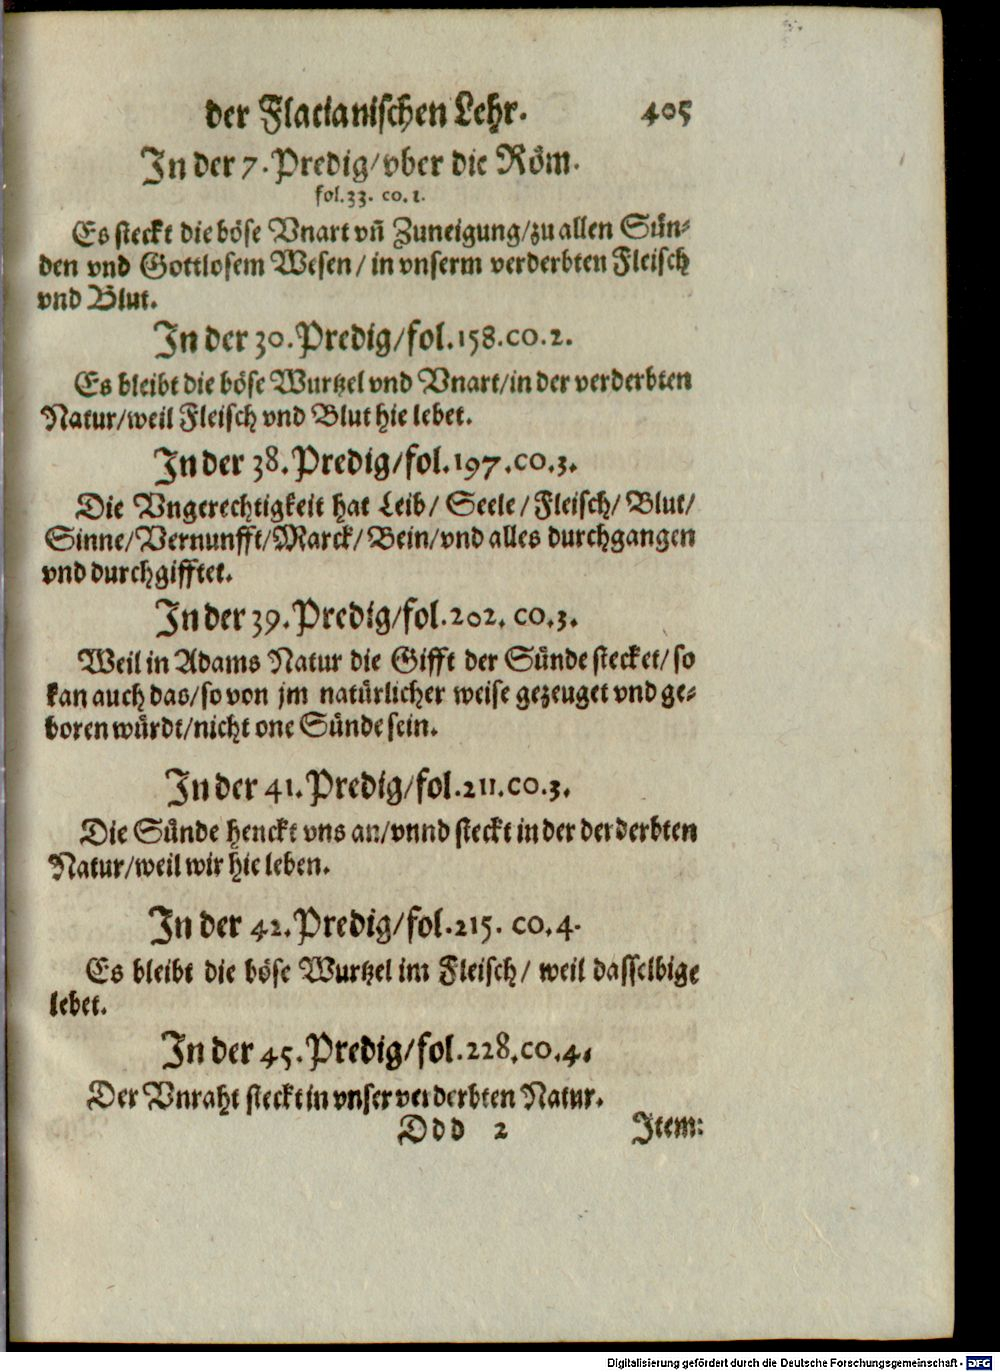 der Flacianischen Lehr. 405
In der 7. Predig/vber die Röm.
fol. 33. co. 1.
Es steckt die böse Vnart vn̄ Zuneigung/zu allen Sün-
den vnd Gottlosem Wesen/ in vnserm verderbten Fleisch
vnd Blut.
In der 30. Predig/fol. 158. co. 2.
Es bleibt die böse Wurtzel vnd Vnart/in der verderbten
Natur/weil Fleisch vnd Blut hie lebet.
In der 38. Predig/fol. 197. co. 3.
Die Vngerechtigkeit hat Leib/ Seele/ Fleisch/ Blut/
Sinne/Vernunfft/Marck/ Bein/vnd alles durchgangen
vnd durchgifftet.
In der 39. Predig/fol. 202. co. 3.
Weil in Adams Natur die Gifft der Sünde stecket/ so
kan auch das/so von jm natürlicher weise gezeuget vnd ge-
boren würdt/nicht one Sünde sein.
In der 41. Predig/fol. 211. co. 3.
Die Sünde henckt vns an/vnnd steckt in der derderbten
Natur/weil wir hie leben.
In der 42. Predig/fol. 215. co. 4.
Es bleibt die böse Wurtzel im Fleisch/ weil dasselbige
lebet.
In der 45. Predig/fol. 228. co. 4.
Der Vnraht steckt in vnser verderbten Natur.
Ddd 2 Item:
Digitalisierung gefördert durch die Deutsche Forschungsgemeinschaft - DFG